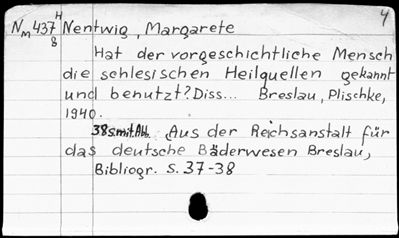 4
N m 437 H 8 Nentwig, Margarete
Hat der vorgeschichtliche Mensch
die schlesischen Heilquellen gekannt
und benutzt? Diss... Breslau, Plischke,
1940.
38 S. mit Abb. Aus der Reichsanstalt für
das deutsche Bäderwesen Breslau,
Bibliogr. S. 37-38